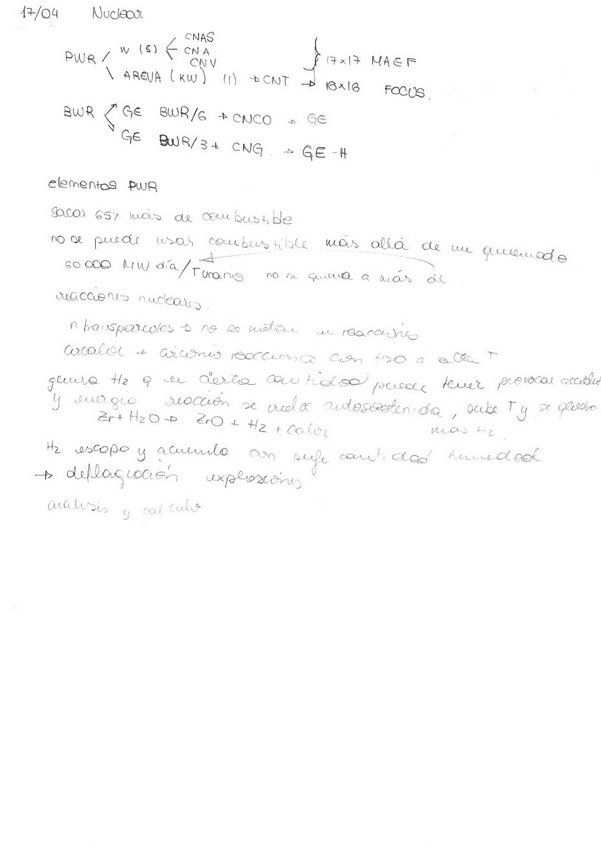 17/04 Nuclear
CNAS
PWR W (6) CNA
CNV 17x17 MAEF
AREVA (KW) (1) → CNT → 18x18 FOCUS.
BWR GE BWR/6 → CNCO → GE
GE BWR/3 → CNG → GE-H
elementos PWR
sacas 65% más de combustible
no se puede usar combustible más allá de un quemado
60 000 MW día/T uranio no se quema a más de
reacciones nucleares.
n transparentes → no se meten en reacciones
circaloy → circonio reacciona con H2O a alta T
genera H2 q en cierta cantidad puede tener provocar
y energía reacción se vuelve autosostenida, sube T y se
Zr + H2O → ZrO + H2 + calor más H2.
H2 escapa y acumula con cantidad humedad
→ deflagración explosiones
análisis y calculo